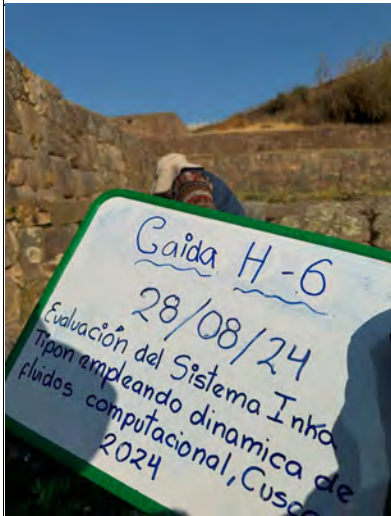 Caida H-6
28/08/24
Evaluación del Sistema Inka
Tipon empleando dinamica de
fluidos computacional, Cusco
2024